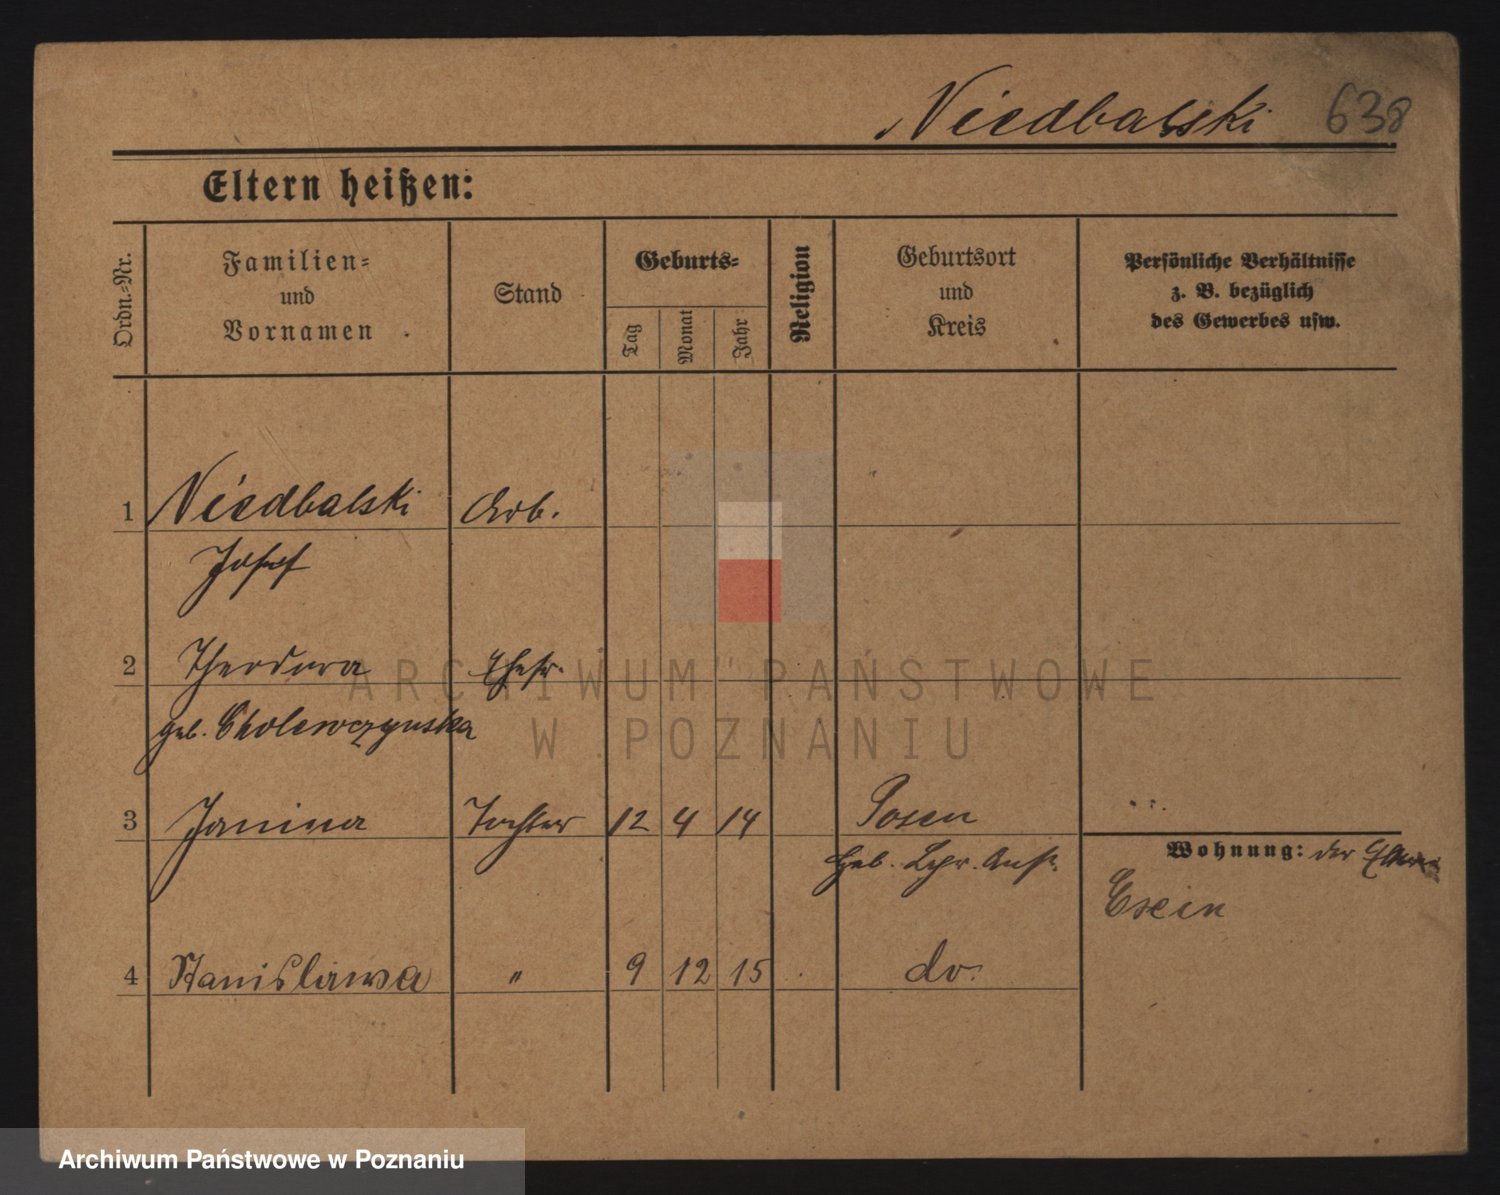 Niedbalski 638
Eltern heißen:
Ordn.-Nr.
Familien-
und
Vornamen
Stand
Geburts-
Tag
Monat
Jahr
Religion
Geburtsort
und
Kreis
Persönliche Verhältnisse
z. B. bezüglich
des Gewerbes usw.
1 Niedbalski Arb.
Josef
2 Theodora Ehefr.
geb. Cholewczynska
3 Janina Tochter 12 4 14 Posen
Heb. Lehr. Anst.
Wohnung: der Eltern
4 Stanislawa " 9 12 15 do.
ARCHIWUM PAŃSTWOWE
W POZNANIU
Archiwum Państwowe w Poznaniu